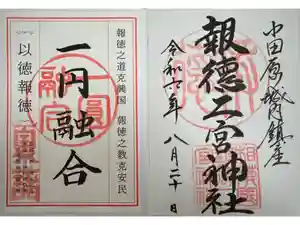 小田原城内鎮座
報徳二宮神社
令和六年八月二十日
報徳之道克興国 報徳之教克安民
一円融合
以徳報徳